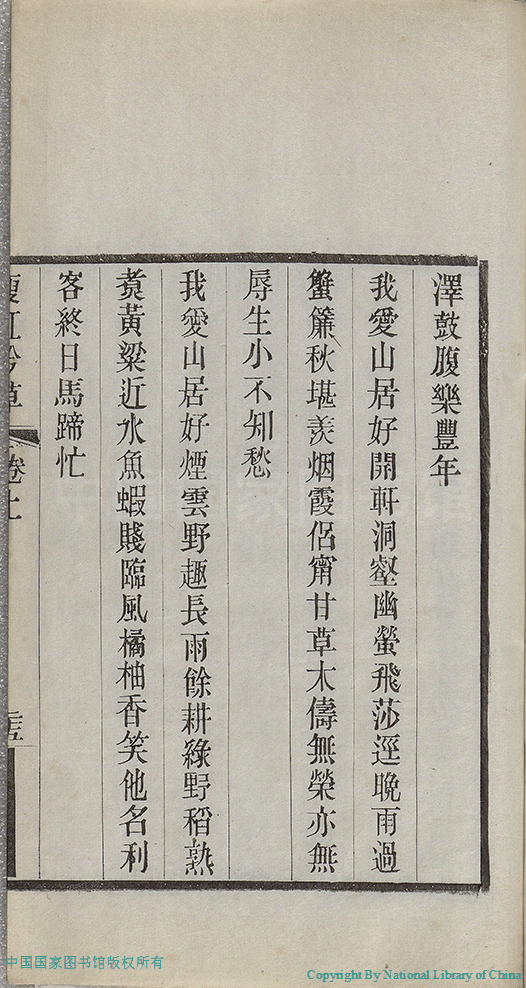 澤鼓腹樂豐年
我愛山居好開軒洞壑幽螢飛莎逕晚雨過
蟹簾秋堪羨烟霞侶甯甘草木儔無榮亦無
辱生小不知愁
我愛山居好煙雲野趣長雨餘耕綠野稻熟
煑黃粱近水魚蝦賤臨風橘柚香笑他名利
客終日馬蹄忙
卷上
中国国家图书馆版权所有
Copyright By National Library of China